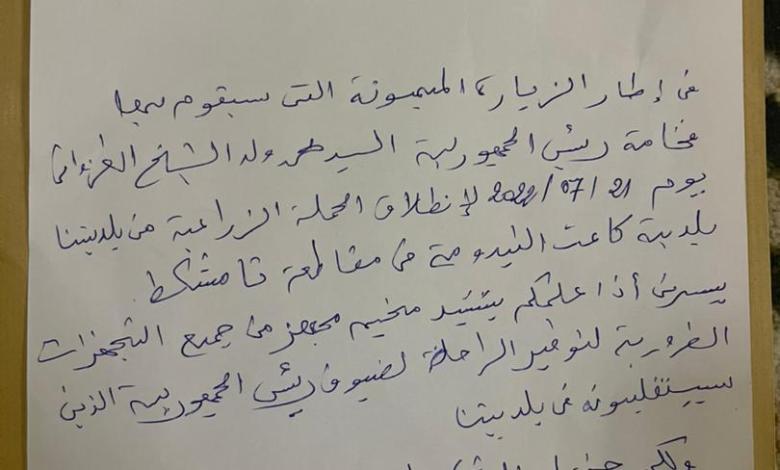 في إطار الزيارة الميمونة التي سيقوم بها
فخامة رئيس الجمهورية السيد محمد ولد الشيخ الغزواني
يوم 21/07/2022 لإنطلاق الحملة الزراعية من بلديتنا
بلدية كاعت التيدومة في مقاطعة تامشكط
يسرني أن أعلمكم بتشييد مخيم مجهز من جميع التجهزات
الضرورية لتوفير الراحة لضيوف رئيس الجمهورية الذين
سيستقبلونه في بلديتنا
ولكم